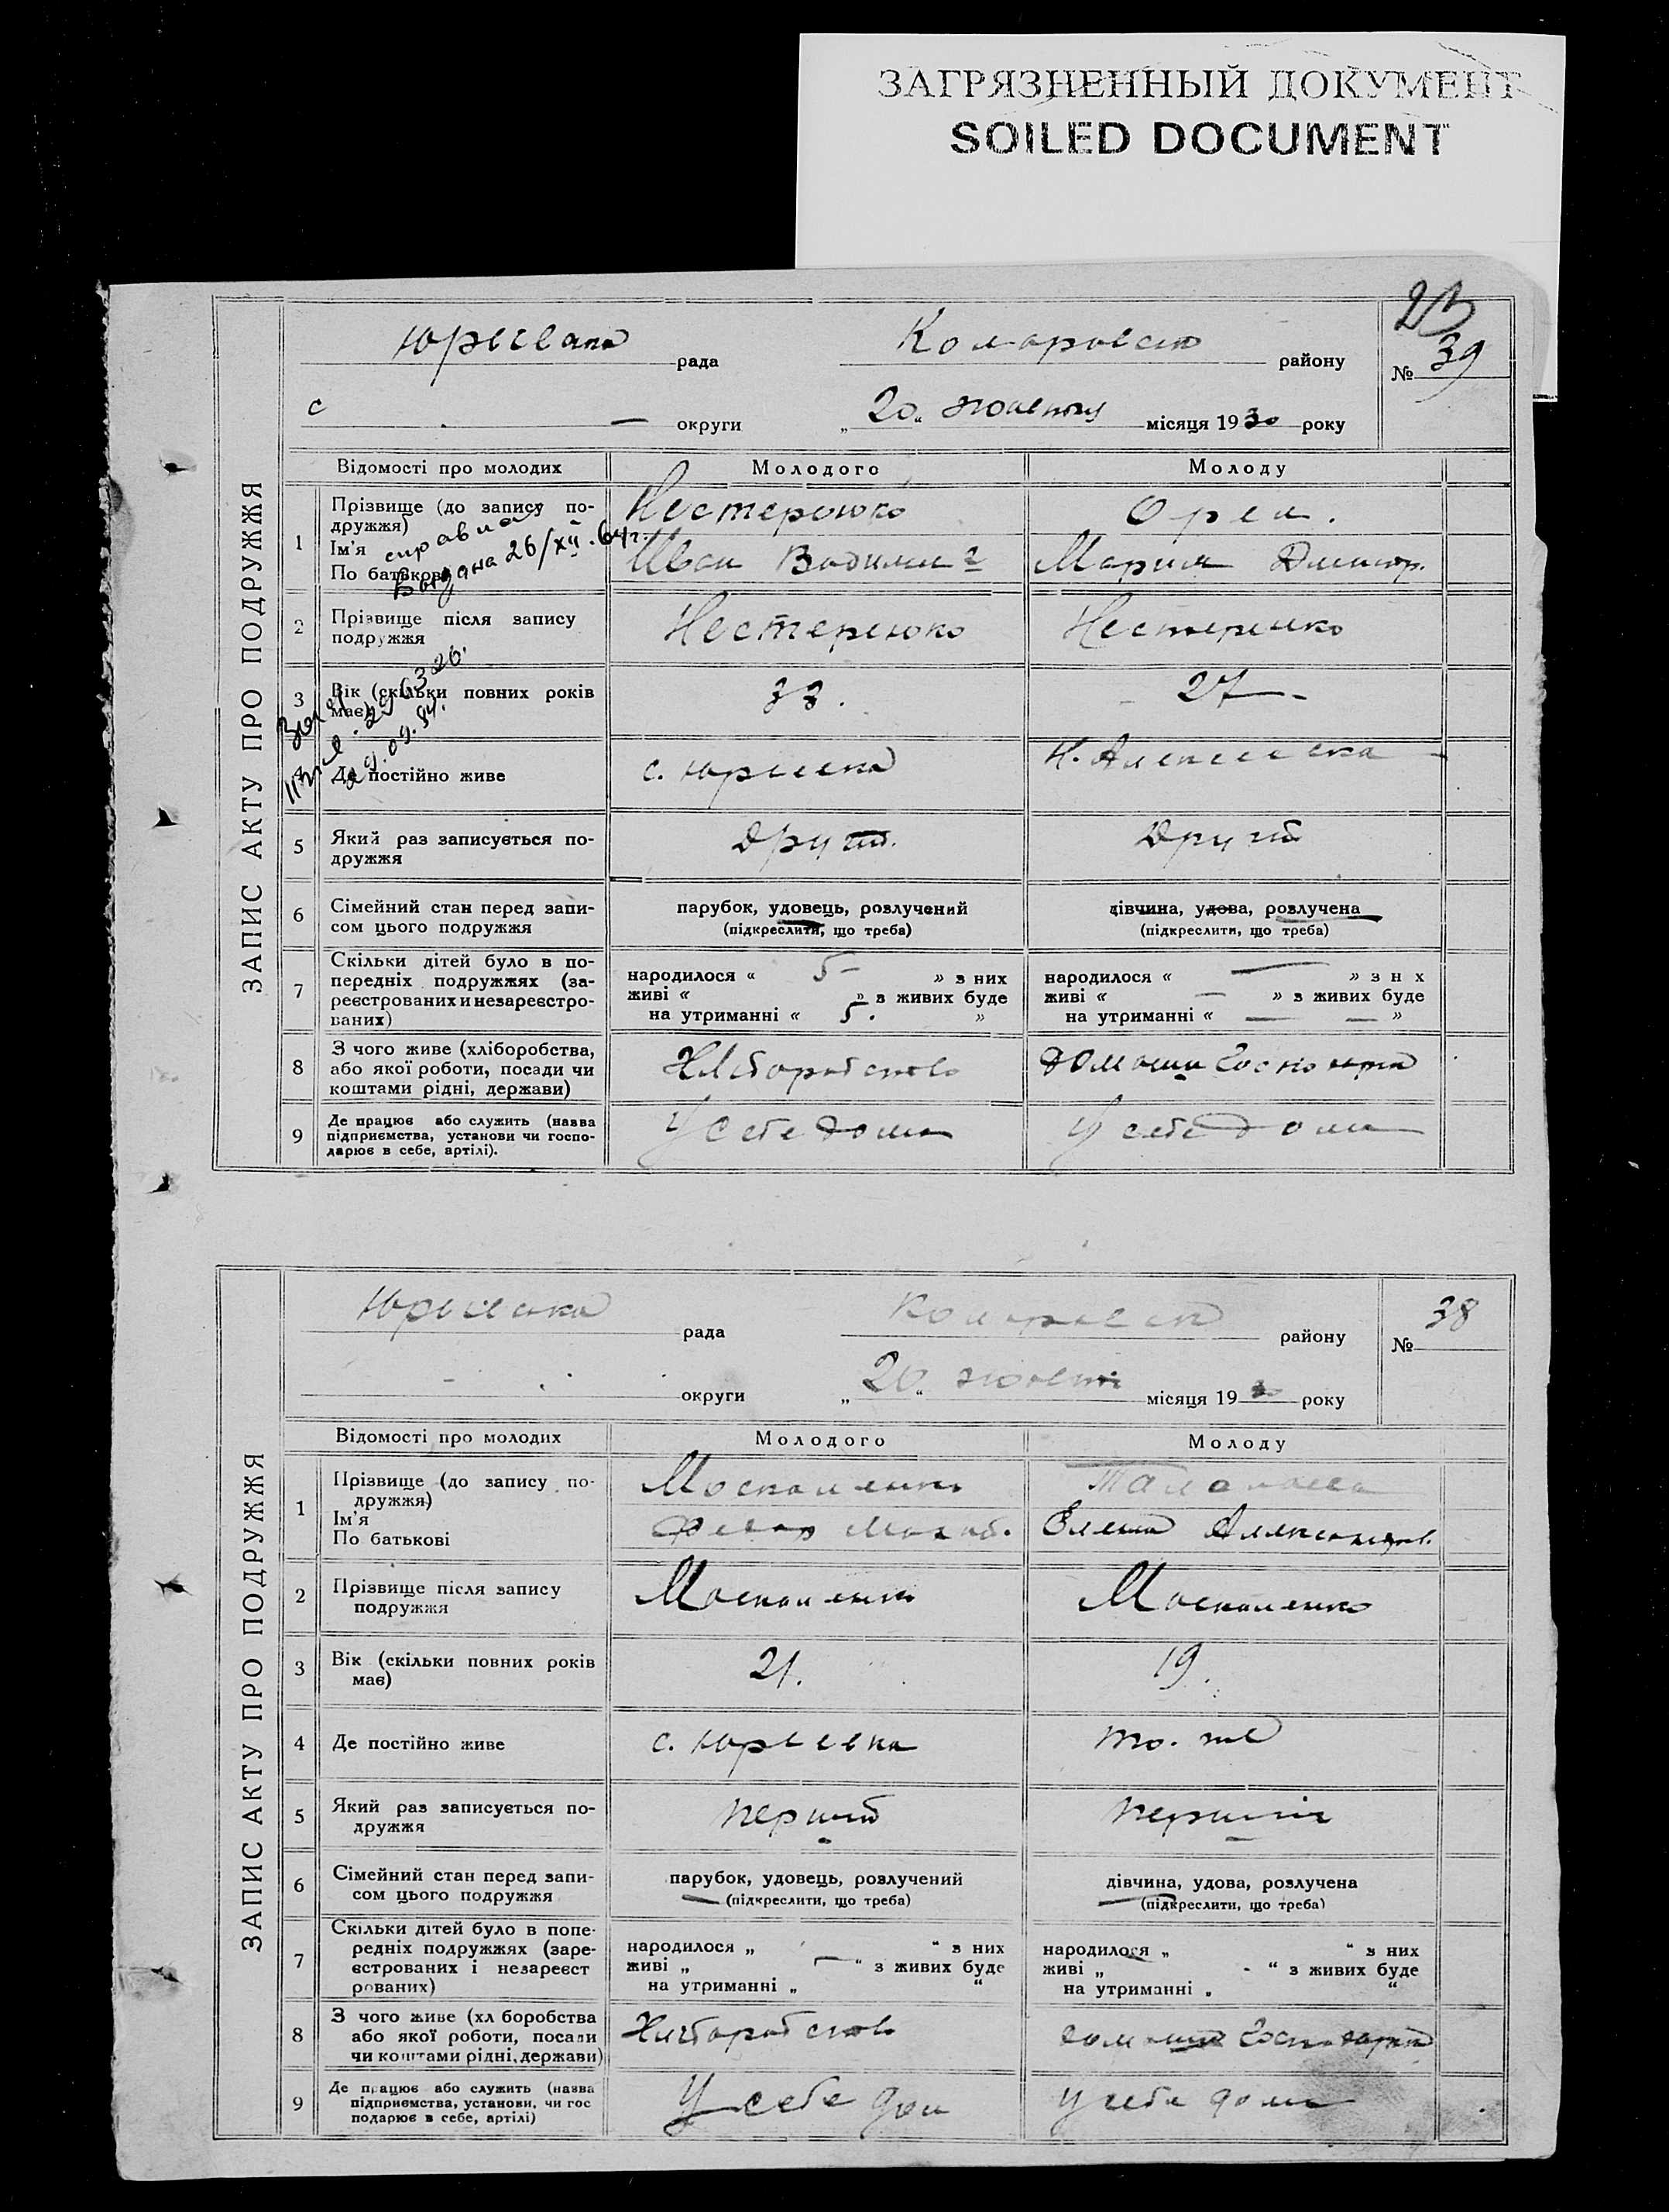 ЗАГРЯЗНЕННЫЙ ДОКУМЕНТ
SOILED DOCUMENT
ЗАПИС АКТУ ПРО ПОДРУЖЖЯ
рада
району
№ 39
округи
„20“ місяця 1930 року
Відомості про молодих Молодого Молоду
1 Прізвище (до запису по-
дружжя)
Ім'я
По батькові
справка
Выдана 26/XII.64г.
Орел.
Иван
Мария
2 Прізвище після запису
подружжя
Нестеренко
3 Вік (скільки повних років
має)
33.
27
4 Де постійно живе
с. Юрьевка
5 Який раз записується по-
дружжя
Другий
Другий
6 Сімейний стан перед запи-
сом цього подружжя
парубок, удовець, розлучений
(підкреслити, що треба)
дівчина, удова, розлучена
(підкреслити, що треба)
7 Скільки дітей було в по-
передніх подружжях (за-
реєстрованих и незареєстро-
ваних)
народилося « 5 – » з них
живі « » з живих буде
на утриманні « 5. »
народилося « — » з н х
живі « — » з живих буде
на утриманні « — — »
8 З чого живе (хліборобства,
або якої роботи, посади чи
коштами рідні, держави)
Хліборобство
9 Де працює або служить (назва
підприємства, установи чи госпо-
дарює в себе, артілі).
У себе дома
У себе дома
ЗАПИС АКТУ ПРО ПОДРУЖЖЯ
рада
району
№ 38
округи
„20“ місяця 1930 року
Відомості про молодих Молодого Молоду
1 Прізвище (до запису по-
дружжя)
Ім'я
По батькові
Москаленко
Елена Александров.
2 Прізвище після запису
подружжя
Москаленко
Москаленко
3 Вік (скільки повних років
має)
21.
19.
4 Де постійно живе
с. Юрьевка
то. же
5 Який раз записується по-
дружжя
перший
перший
6 Сімейний стан перед запи-
сом цього подружжя
парубок, удовець, розлучений
(підкреслити, що треба)
дівчина, удова, розлучена
(підкреслити, що треба)
7 Скільки дітей було в попе-
редніх подружжях (заре-
єстрованих і незареєст
рованих)
народилося „ “ з них
живі „ — “ з живих буде
на утриманні „ “
народилося „ “ з них
живі „ - “ з живих буде
на утриманні „ “
8 З чого живе (хл боробства
або якої роботи, посади
чи коштами рідні, держави)
Хліборобство
9 Де працює або служить (назва
підприємства, установи, чи гос
подарює в себе, артілі)
У себе дом
У себе дома